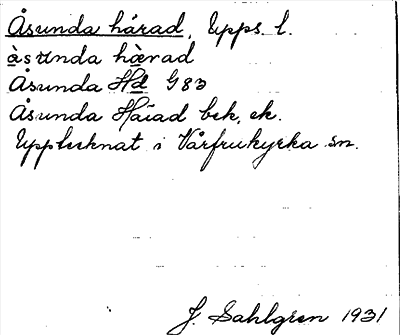 Åsunda härad, Upps. l.
å̀sun̄da hà̤rad
Åsunda Hd G 83
Åsunda Härad bek, ek.
Upptecknat i Vårfrukyrka sn.
J. Sahlgren 1931